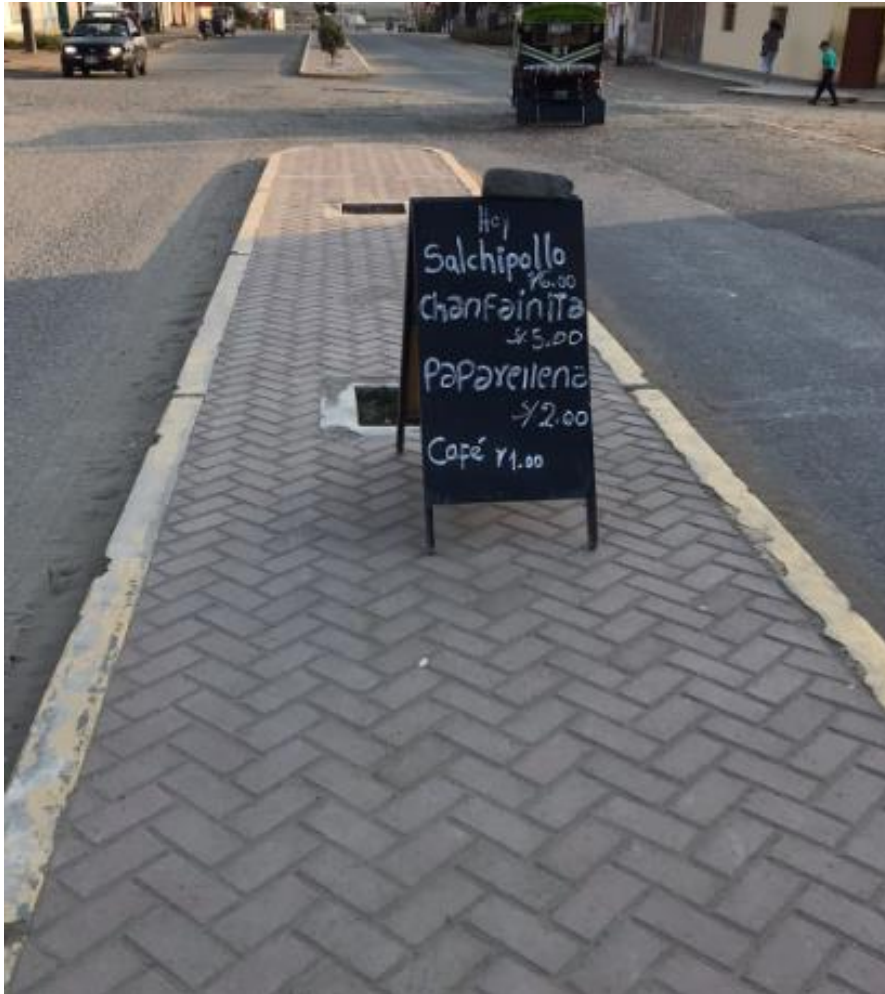 Hoy
Salchipollo
S/6.00
Chanfainita
S/5.00
Paparellena
S/2.00
Café S/1.00